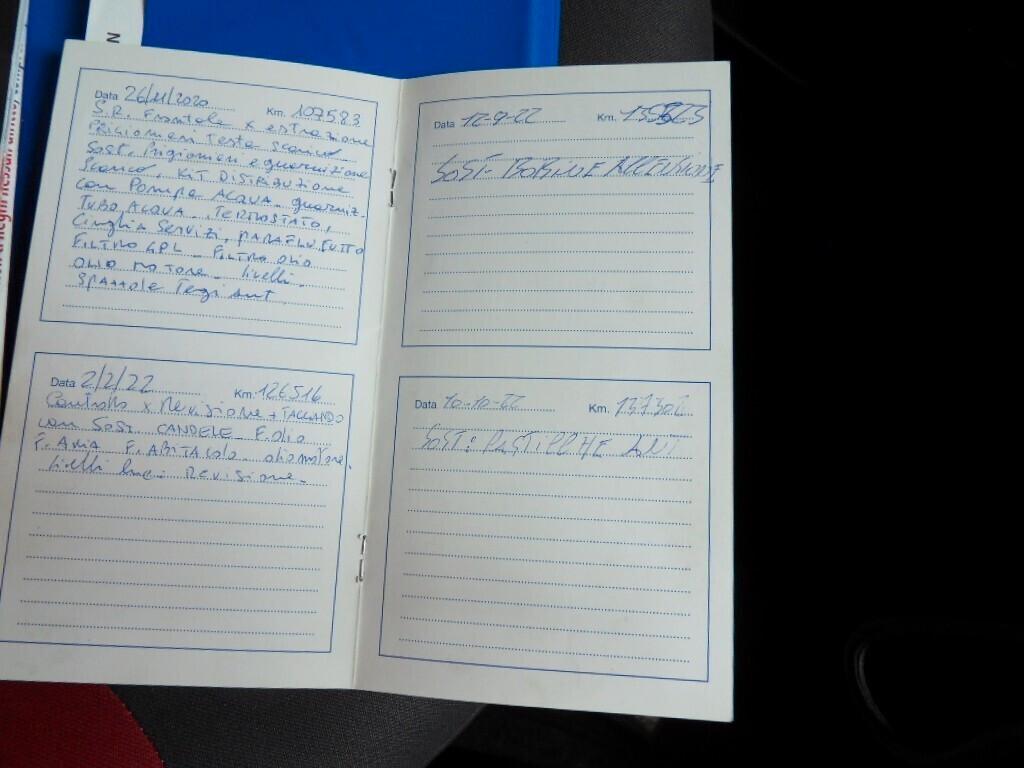 N
Data 26/11/2020 Km. 107583
S.R. Frontale x estrazione
Prigionieri Testa Scarico
Sost. Prigionieri e guarnizione
Scarico, KIT DISTRIBUZIONE
con Pompa ACQUA guarniz.
TUBO ACQUA TERMOSTATO,
Cinghia Servizi, PARAFLU TUTTO
FILTRO GPL - FILTRO OLIO
OLIO MOTORE livelli
Spazzole Tergi ant
Data 2/2/22 Km. 126516
Controllo x Revisione + TAGLIANDO
con Sost. CANDELE F. olio
F. ARIA F. ABITACOLO olio motore.
livelli luci Revisione
Data 12-9-22 Km.
SOST- BOBINE ACCENSIONE
Data 10-10-22 Km. 137302
SOST: PASTICCHE ANT